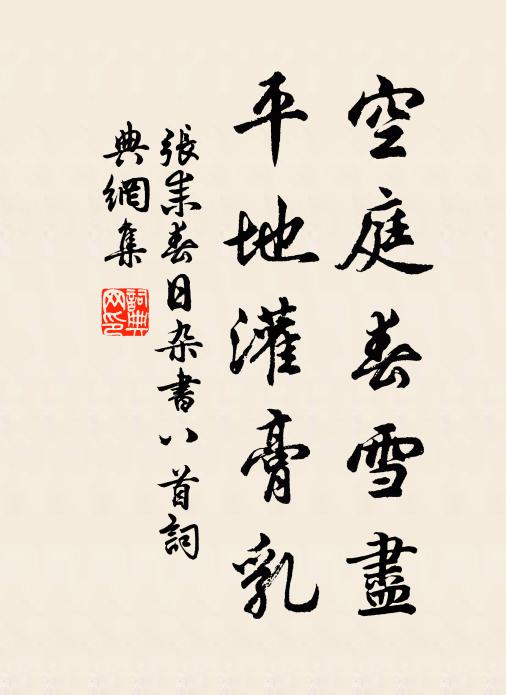 空庭春雪盡
平地灌膏乳
張耒春日杂書八首詞
典網集
詞典网印